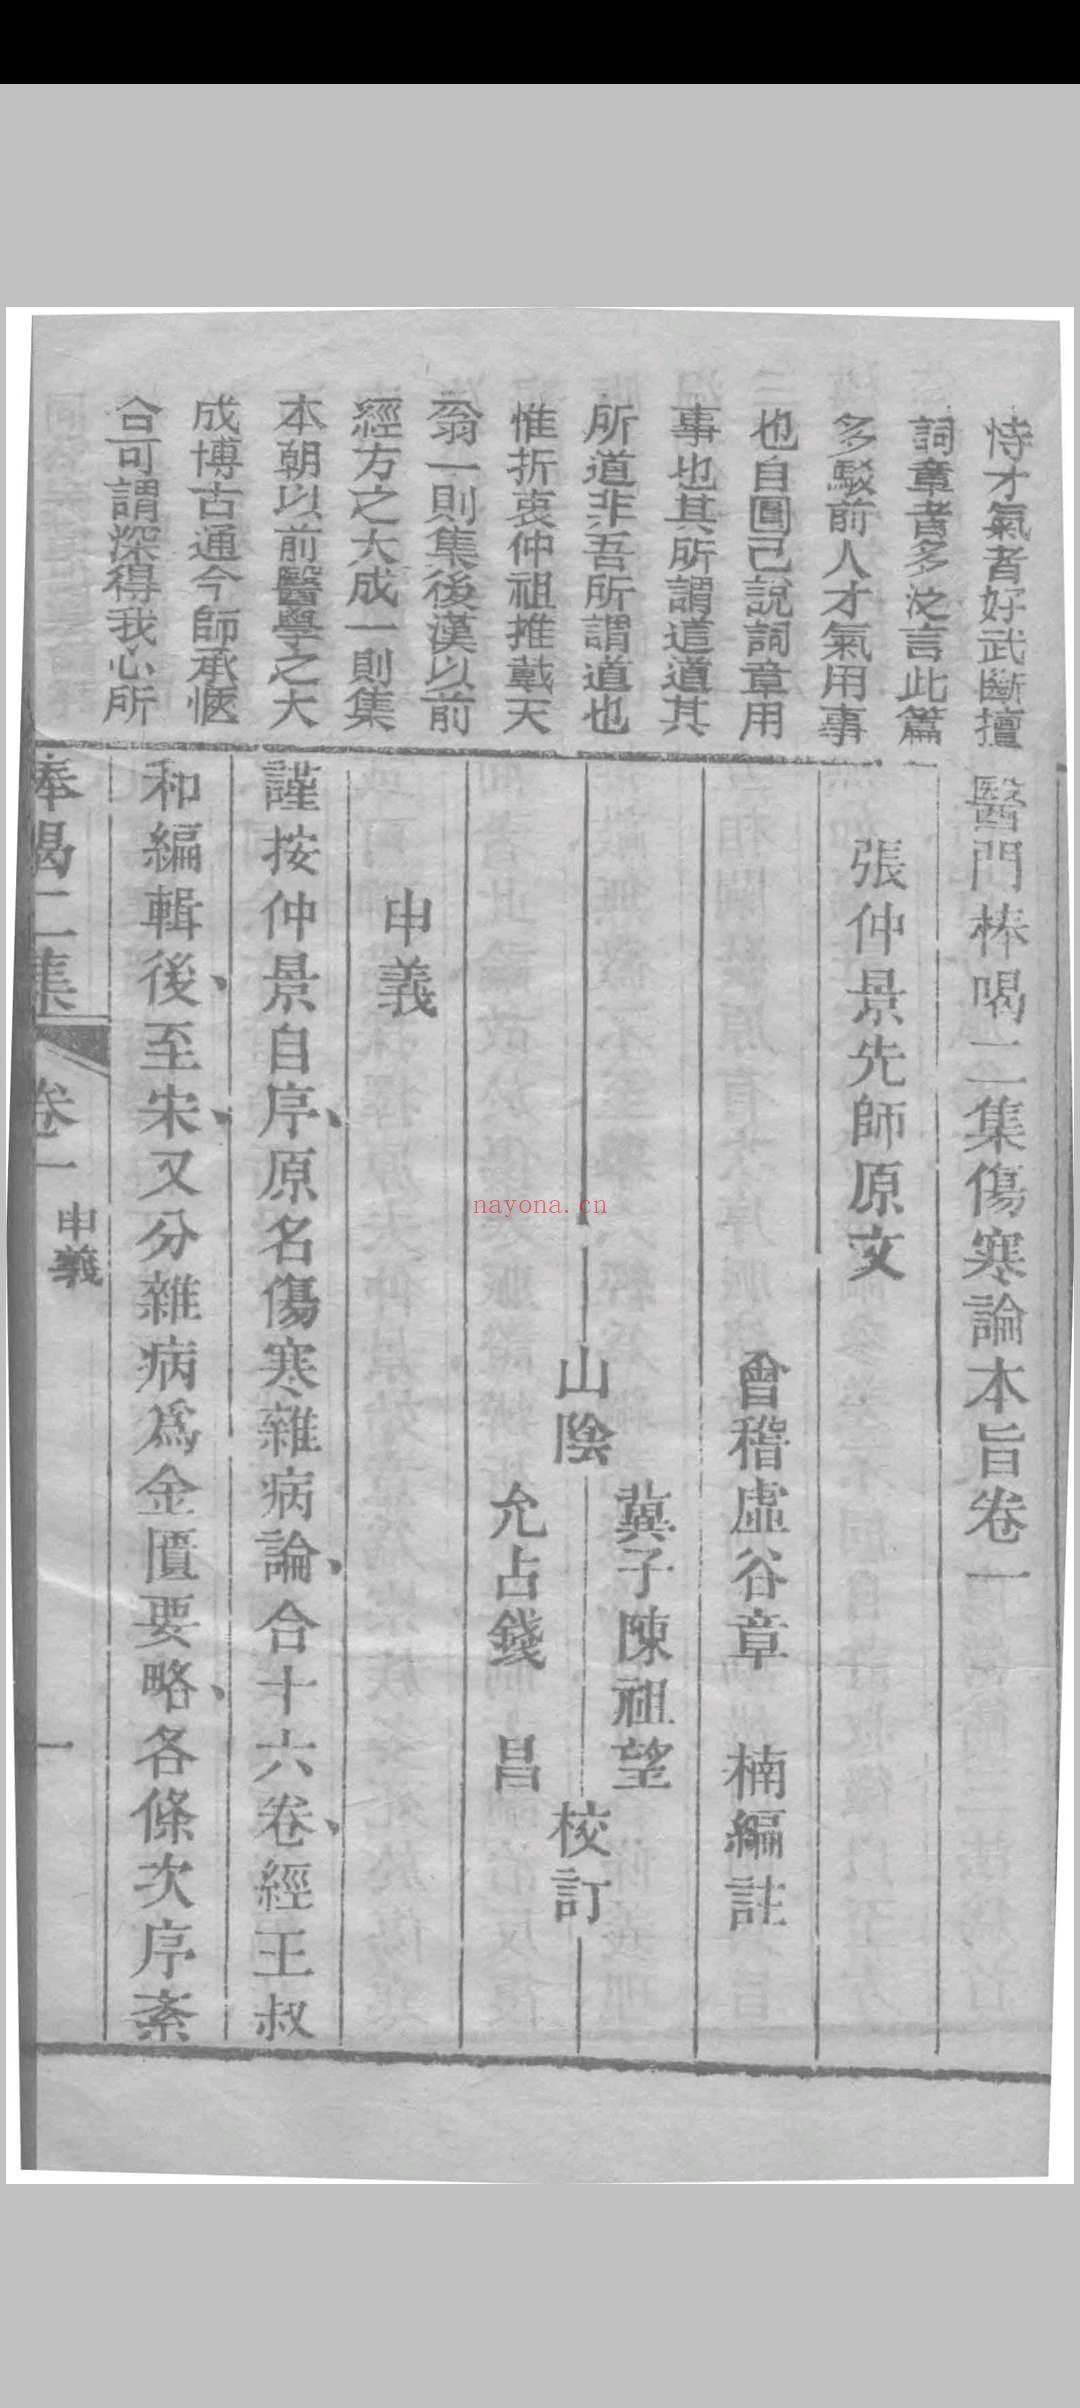 恃才氣者好武斷擅
詞章者多泛言此篇
多駁前人才氣用事
也自圓己說詞章用
事也其所謂道道其
所道非吾所謂道也
惟折衷仲祖推戴天
翁一則集後漢以前
經方之大成一則集
本朝以前醫學之大
成博古通今師承愜
合可謂深得我心所
醫門棒喝二集傷寒論本旨卷一
張仲景先師原文
會稽虛谷章 楠編註
山陰
蓂子陳祖望
允占錢 昌
校訂
申義
謹按仲景自序、原名傷寒雜病論、合十六卷、經王叔
和編輯後、至宋、又分雜病爲金匱要略、各條次序紊
棒喝二集
卷一
申義
一
nayona.cn